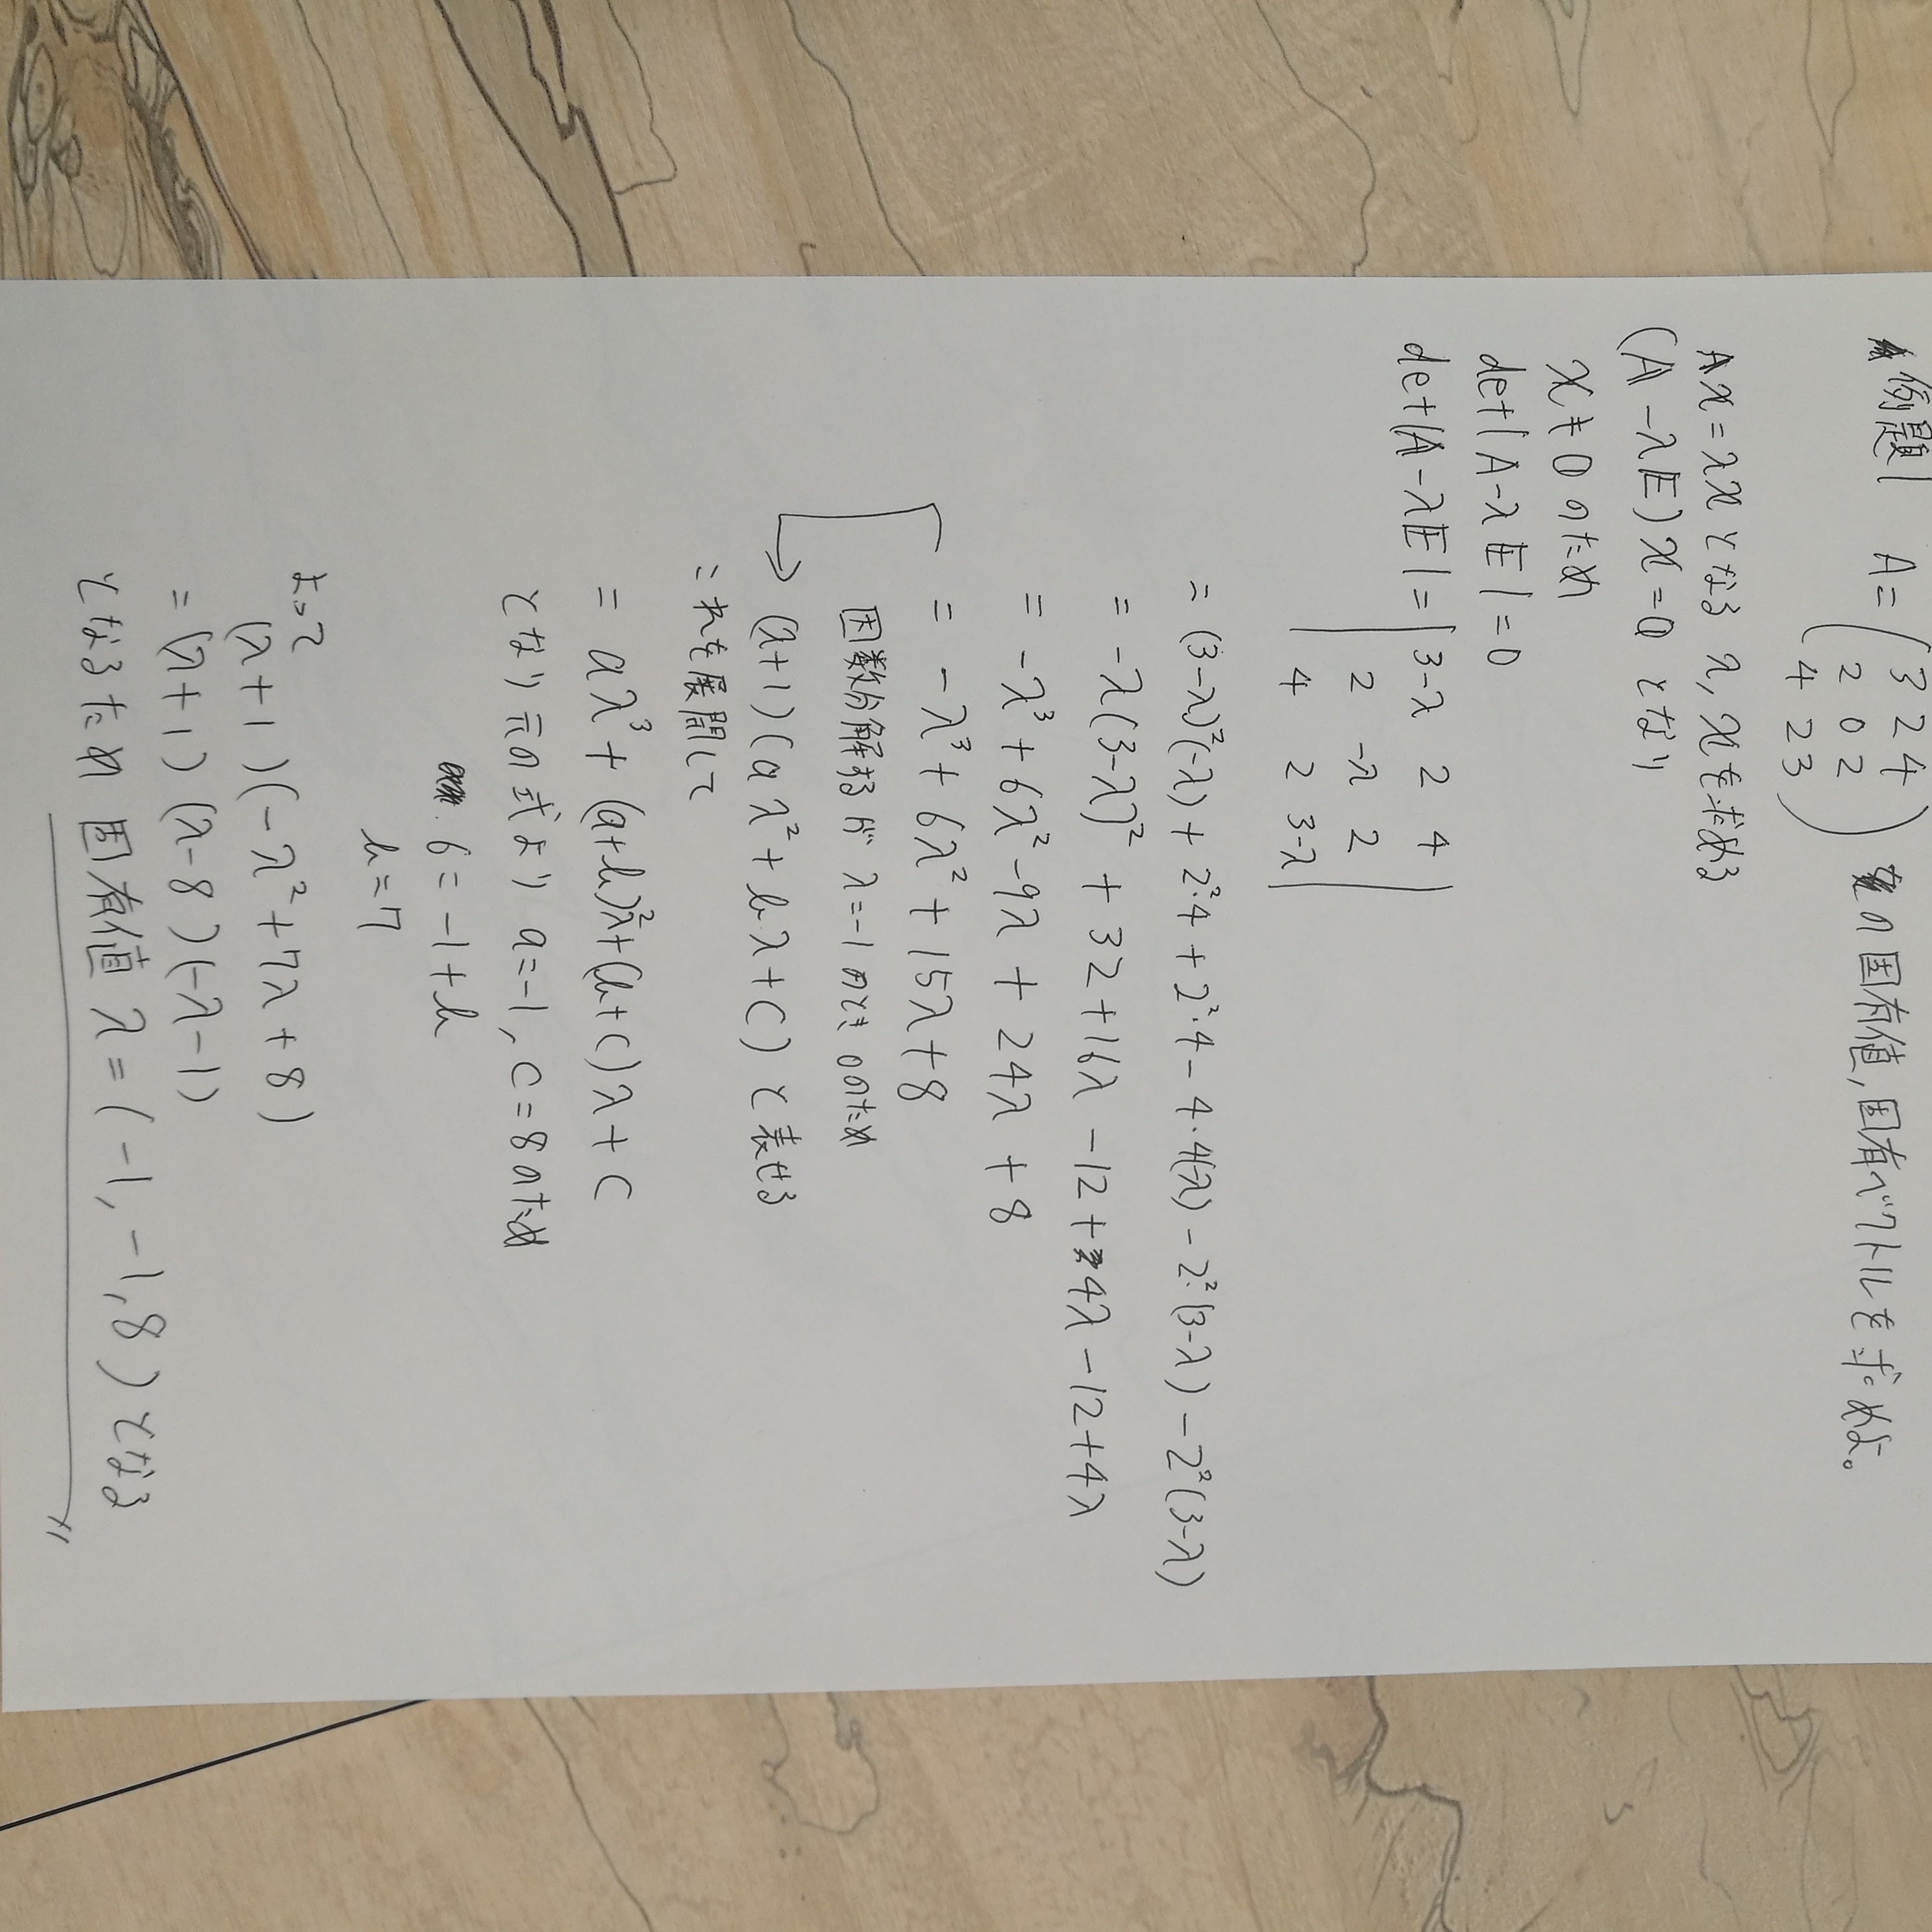 例題1 A = ( 3 2 4 の固有値, 固有ベクトルを求めよ。
2 0 2
4 2 3 )
Ax = λx となる λ, x を求める
(A - λE) x = 0 となり
x ≠ 0 のため
det|A - λE| = 0
det|A - λE| = | 3-λ 2 4 |
2 -λ 2
4 2 3-λ |
= (3-λ)²(-λ) + 2²·4 + 2²·4 - 4·4(-λ) - 2²·(3-λ) - 2²(3-λ)
= -λ(3-λ)² + 32 + 16λ - 12 + 4λ - 12 + 4λ
= -λ³ + 6λ² - 9λ + 24λ + 8
= -λ³ + 6λ² + 15λ + 8
因数分解するが λ = -1 のとき 0のため
(λ+1)(aλ² + bλ + c) と表せる
これを展開して
= aλ³ + (a+b)λ² + (b+c)λ + c
となり元の式より a = -1, c = 8 のため
6 = -1 + b
b = 7
よって
(λ+1)(-λ² + 7λ + 8)
= (λ+1)(λ-8)(-λ-1)
となるため 固有値 λ = (-1, -1, 8) となる